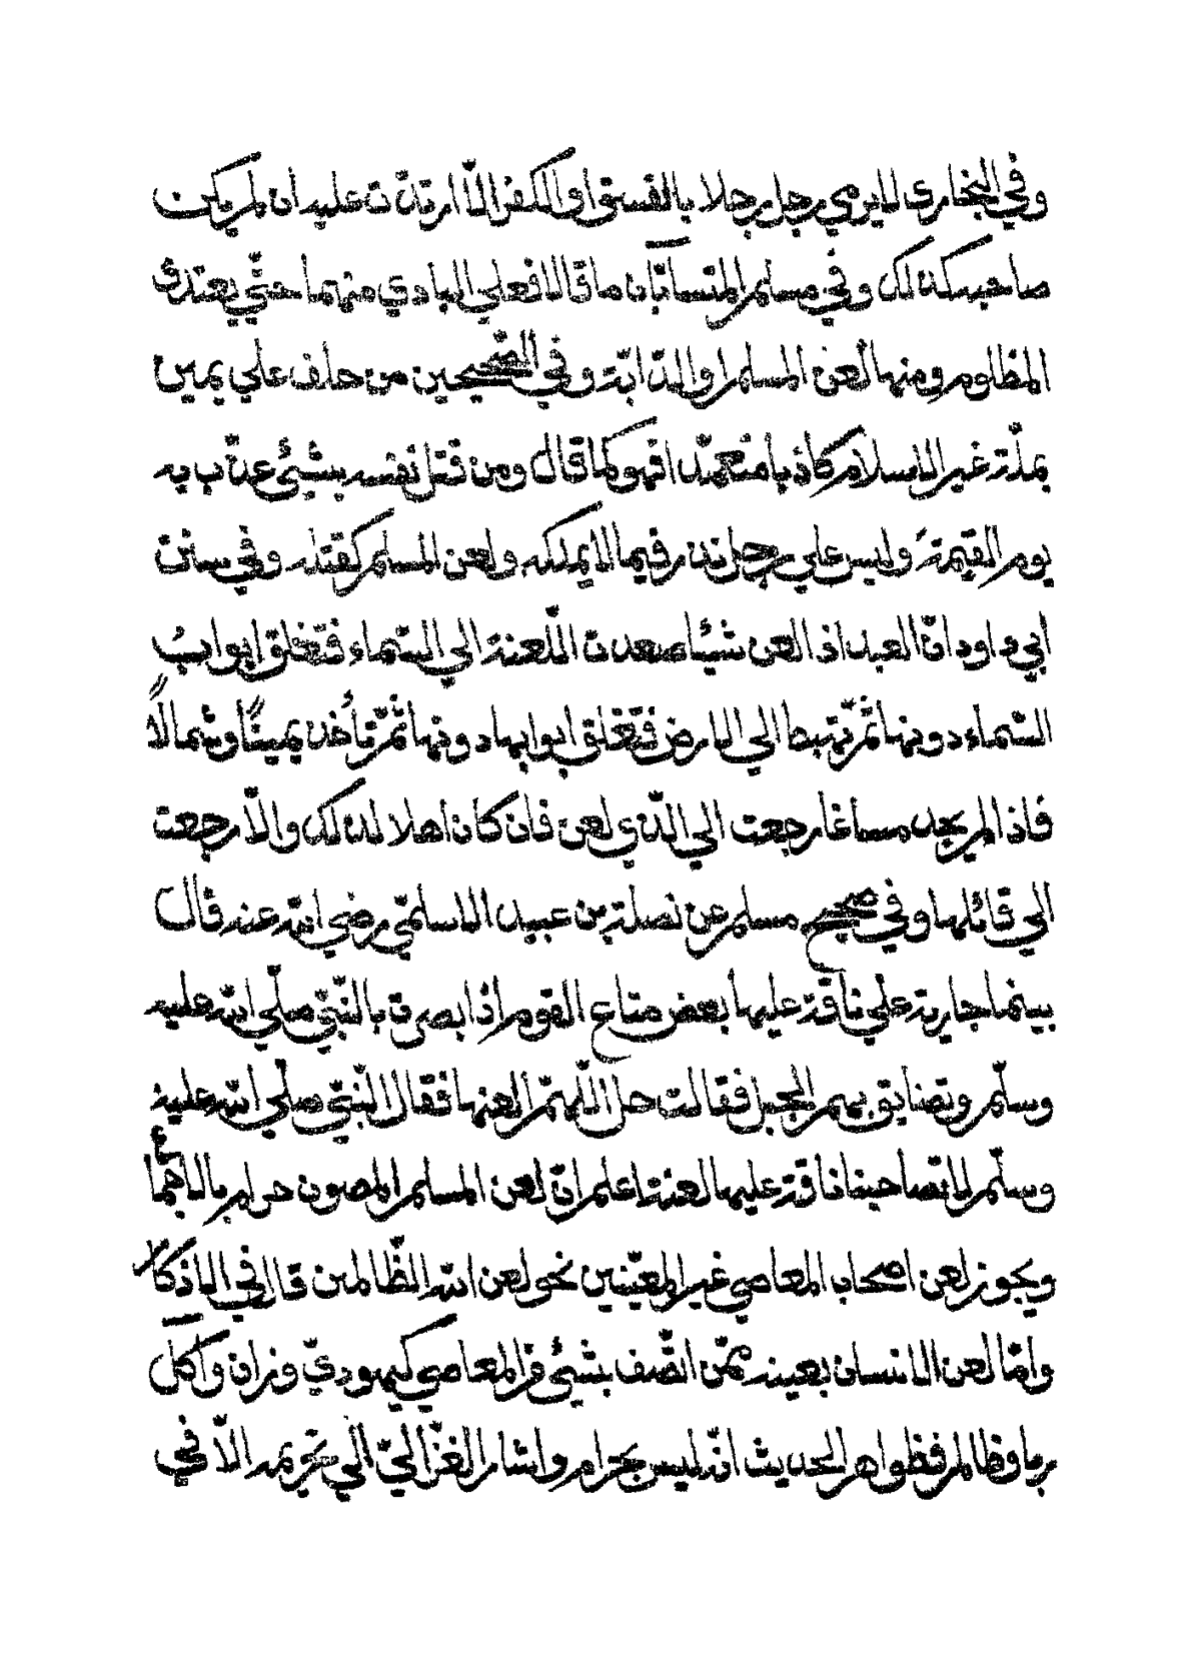 وفي البخاري لا يرمي رجل رجلا بالفسق او الكفر الّا ارتدّت عليه ان لم يكن
صاحبه كذلك وفي مسلم المتسآبّان ما قالا فعلي البادي منهما حتّي يعتدي
المظلوم ومنها لعن المسلم او الدّابّة وفي الصّحيحين من حلف علي يمين
بملّة غير الاسلام كاذبا متعمّدا فهو كما قال ومن قتل نفسه بشئ عذّب به
يوم القيمة وليس علي رجل نذر فيما لا يملكه ولعن المسلم كقتله وفي سنن
أبي داود انّ العبد اذ العن شيئا صعدت اللّعنة الي السّماء فتغلق ابوابُ
السّماء دونها ثمّ تهبط الي الارض فتغلق ابوابها دونها ثمّ تأخذ يمينًا وشمالًا
فاذا لم يجد مساغا رجعت الي الّذي لعن فان كان اهلا لذلك والّا رجعت
الي قائلها وفي صحيح مسلم عن نصلة بن عبيد الاسلميّ رضي الله عنه قال
بينما جارية علي ناقة عليها بعض متاع القوم اذ ابصرت بالنّبيّ صلّي الله عليه
وسلّم وتضايق بهم الجبل فقالت حل اللّهمّ العنها فقال النّبيّ صلّي الله عليه
وسلّم لا تصاحبنا ناقة عليها لعنة اعلم انّ لعن المسلم المصون حرام بالاجماع
ويجوز لعن اصحاب المعاصي غير المعيّنين نحو لعن الله الظّالمين قال في الاذكار
وامّا لعن الانسان بعينه ممّن اتّصف بشئ من المعاصي كيهوديّ وزان وآكل
ربا وظالم فظواهر الحديث انّه ليس بحرام واشار الغزّاليّ الي تحريمه الّا في